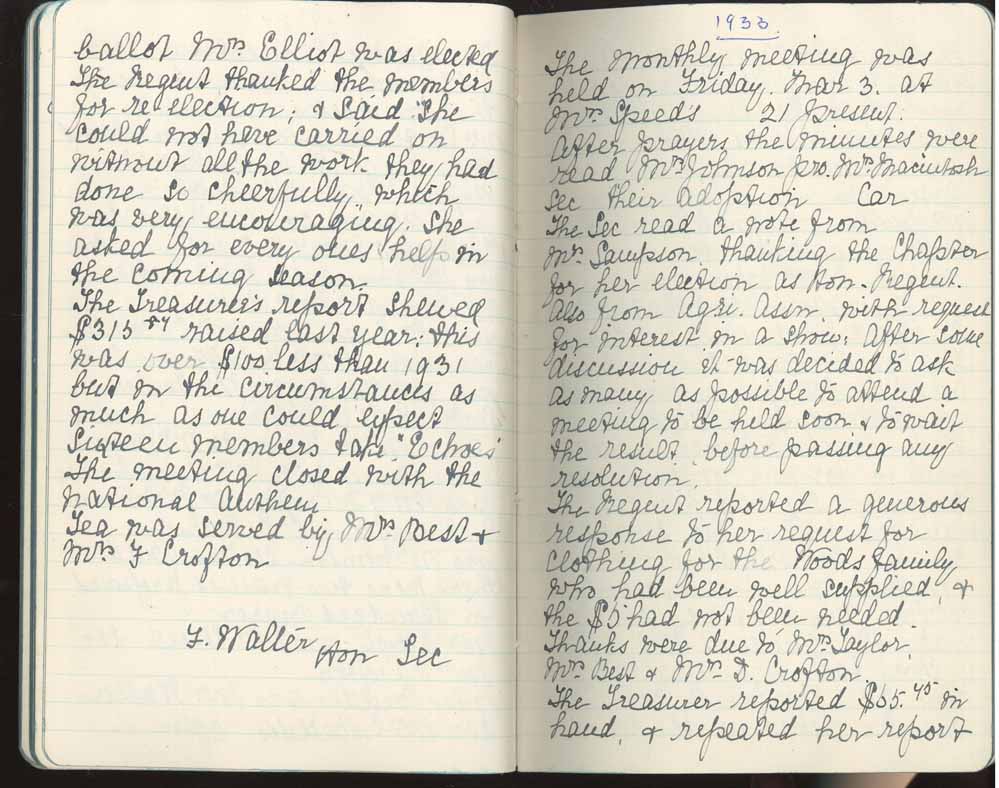 ballot Mrs Elliot was elected
The Regent thanked the members
for re election; & said "She
could not have carried on
without all the work they had
done so cheerfully which
was very encouraging". She
asked for every ones help in
the coming season.
The Treasurer's report shewed
$315 54 raised last year; this
was over $100 less than 1931
but in the circumstances as
much as one could expect
Sixteen members take "Echoes"
The meeting closed with the
National Anthem
Tea was served by Mrs Best &
Mrs F Crofton
F. Walter Hon Sec
1933
The monthly meeting was
held on Friday. Mar 3. at
Mrs Speed's 21 Present.
After prayers the minutes were
read Mrs Johnson pro. Mrs Macintosh
Sec their adoption Car
The Sec read a note from
Mrs Sampson. thanking the Chapter
for her election as Hon. Regent.
Also from Agri. Assn. with request
for interest in a show; After some
discussion it was decided to ask
as many as possible to attend a
meeting to be held soon & to wait
the result before passing any
resolution.
The Regent reported a generous
response to her request for
clothing for the Woods family
who had been well supplied, &
the $5 had not been needed.
Thanks were due to Mrs Taylor,
Mrs Best & Mrs D. Crofton.
The Treasurer reported 45 in
hand, & repeated her report